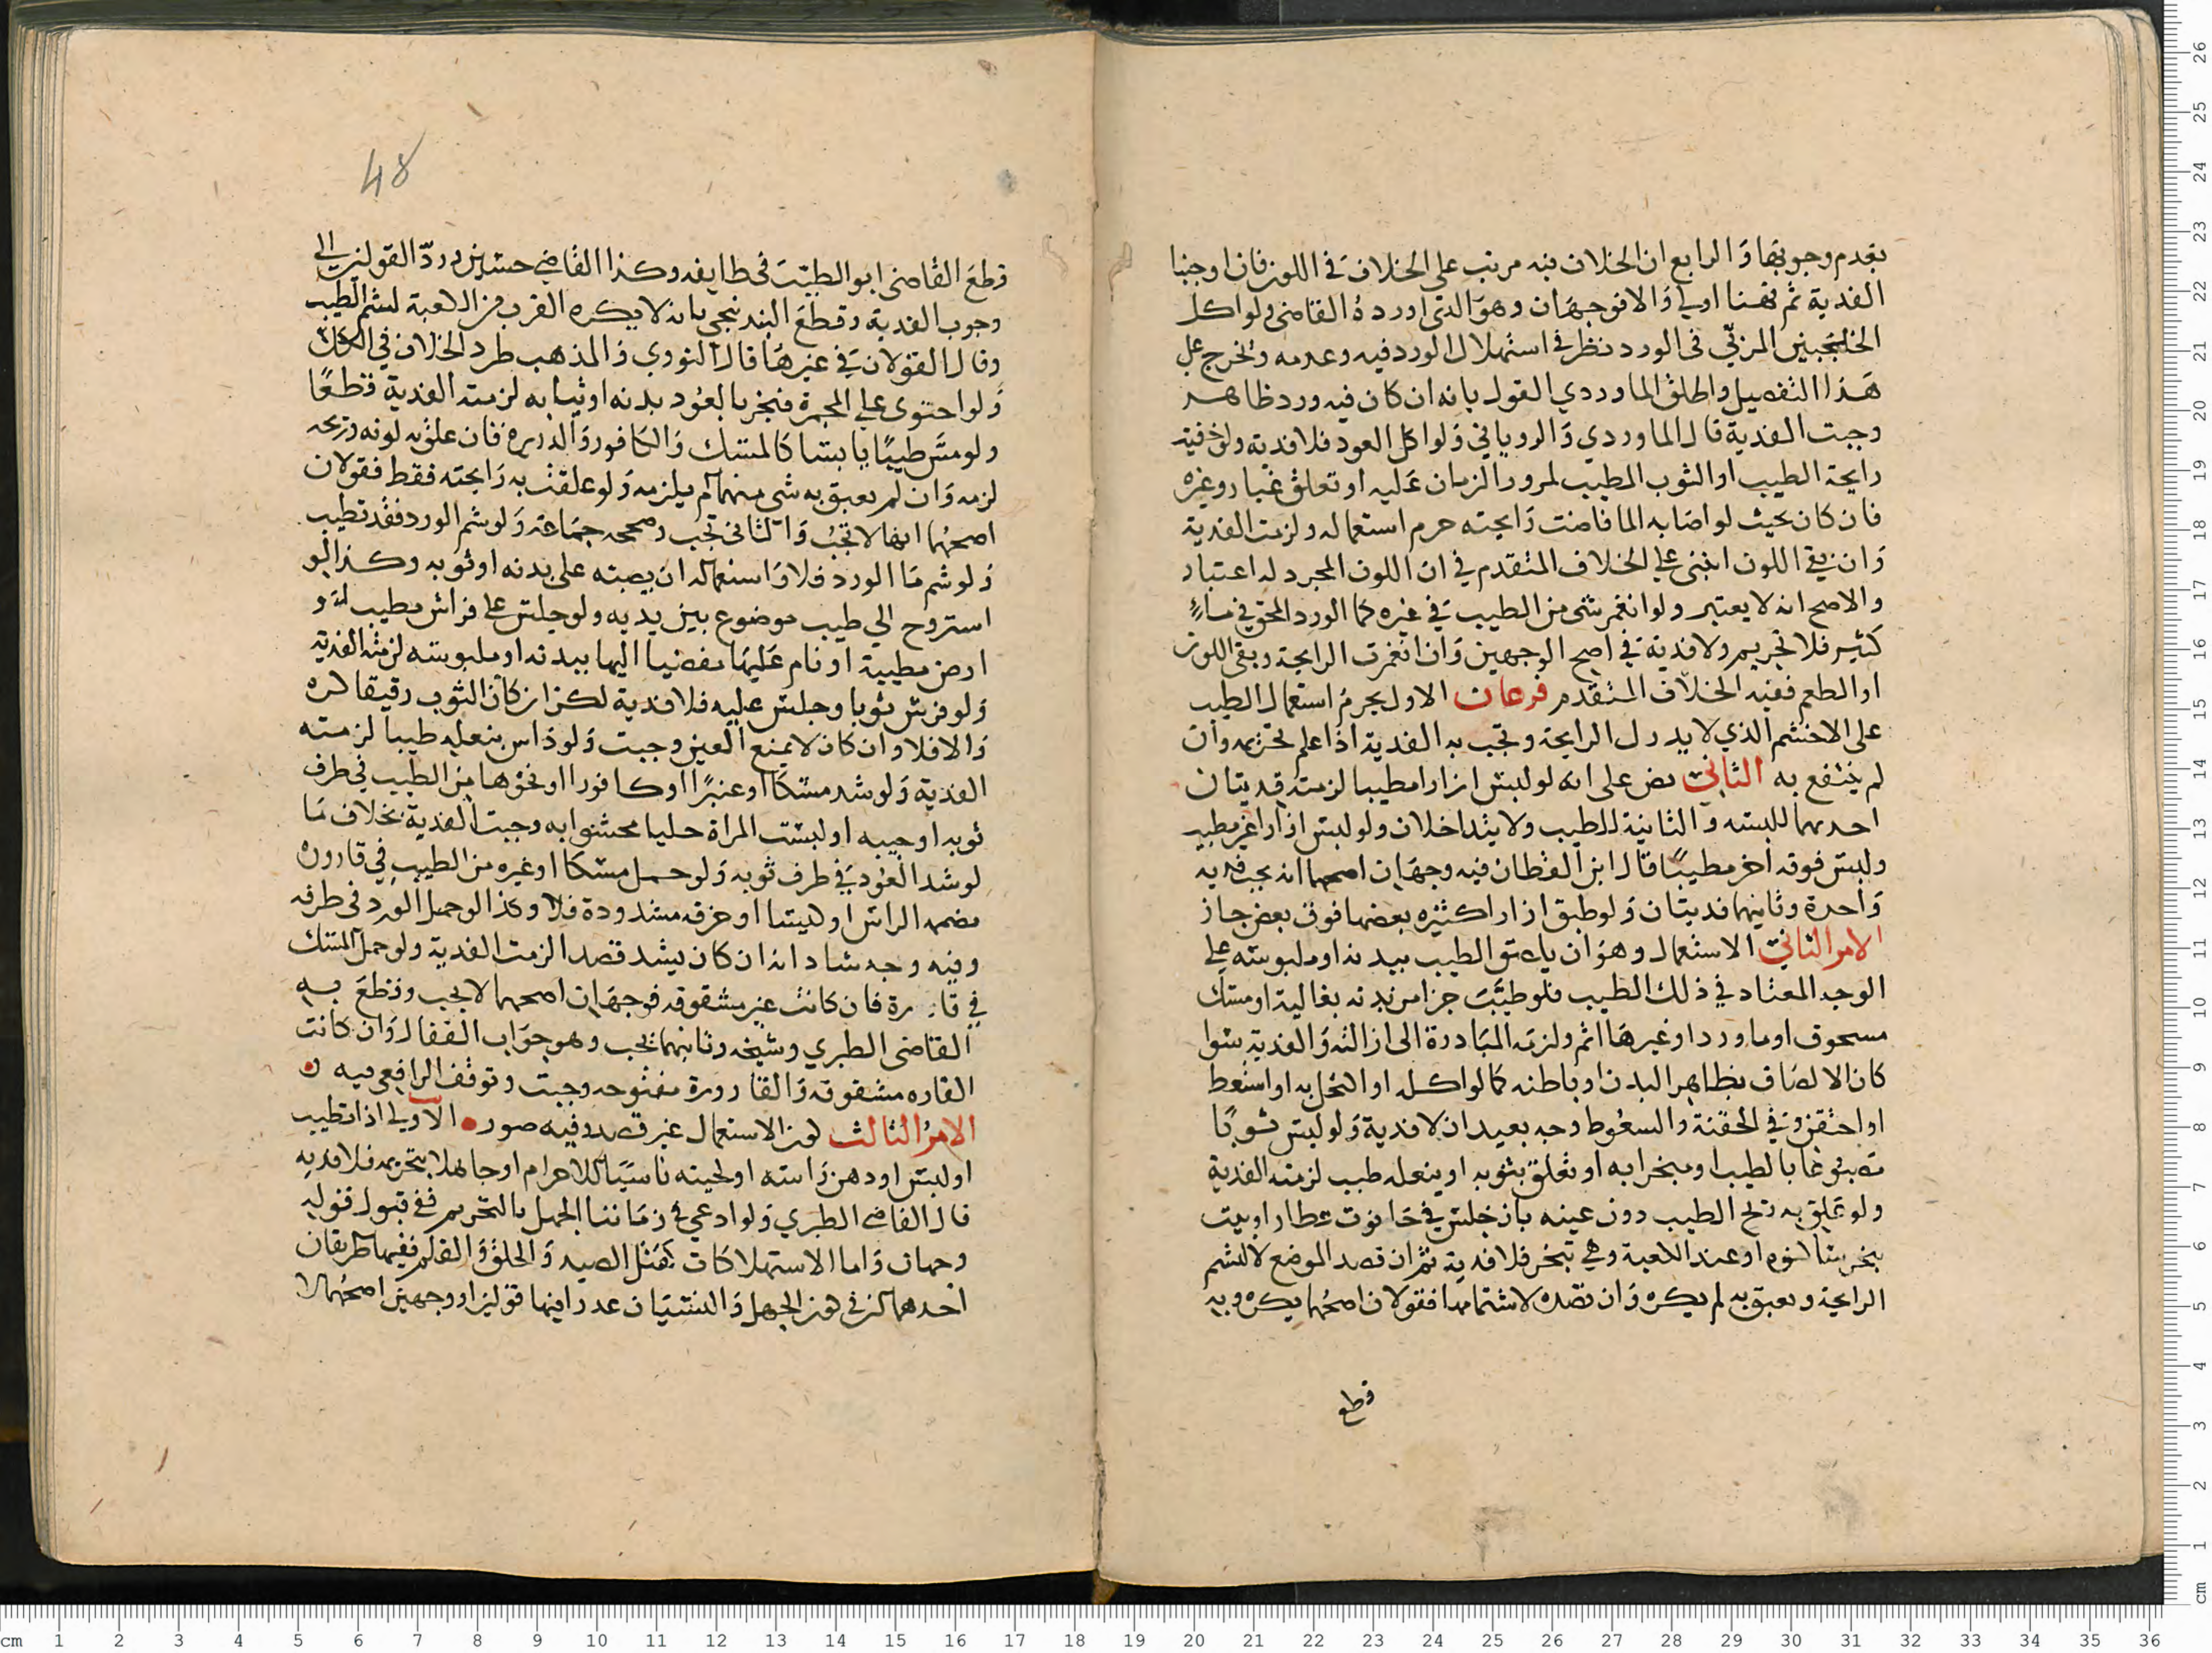 بعدم وجوبها والرابع ان الخلاف فيه مرتب على الخلاف في اللون فان اوجبنا
الفدية ثم فهنا اولي والا فوجهان وهو الذي اورده القاضي ولو اكل
الخلنجبين المربي في الورد نظر في استهلاك الورد فيه وعدمه وتخرج على
هذا التفصيل واطلق الماوردي القول بانه ان كان فيه ورد ظاهر
وجبت الفدية قال الماوردي والروياني ولو اكل العود فلا فدية ولو خفيت
رايحة الطيب او الثوب المطيب لمرور الزمان عليه او تعلق غبار وغيره
فان كان بحيث لو اصابه الما فاحت رايحته حرم استعماله ولزمت الفدية
وان بقي اللون ابتنى على الخلاف المتقدم في ان اللون المجرد له اعتبار
والاصح انه لا يعتبر ولو انغمر شي من الطيب في غيره كما الورد انمحق في ماء
كثير فلا تحريم ولا فدية في اصح الوجهين وان انغمرت الرايحة وبقي اللون
او الطعم ففيه الخلاف المتقدم فرعان الاول يحرم استعمال الطيب
على الاخشم الذي لا يدرك الرايحة وتجب به الفدية اذا علم تحريمه وان
لم ينتفع به الثاني نص على انه لو لبس ازارا مطيبا لزمته فديتان
احدهما للبسه والثانية للطيب ولا يتداخلان ولو لبس ازارا غير مطيب
ولبس فوقه اخر مطيبا قال ابن القطان فيه وجهان اصحهما انه يجب فدية
واحدة وثانيهما فديتان ولو طبق ازارا كثيرة بعضها فوق بعض جاز
الامر الثاني الاستعمال وهو ان يلصق الطيب ببدنه او ملبوسه على
الوجه المعتاد في ذلك الطيب فلو طيب جزا من بدنه بغالية او مسك
مسحوق او ماورد او غيرها اثم ولزمه المبادرة الى ازالته والفدية سوا
كان الالصاق بظاهر البدن او باطنه كما لو اكله او اكتحل به او استعط
او احتقن وفي الحقنة والسعوط وجه بعيد ان لا فدية ولو لبس ثوبا
مصبوغا بالطيب او مبخرا به او تعلق بثوبه او بنعله طيب لزمته الفدية
ولو تعلق به ريح الطيب دون عينه بان جلس في حانوت عطار او بيت
يبخر ساكنوه او عند الكعبة وهي تبخر فلا فدية ثم ان قصد الموضع لا لشم
الرايحة وتعبق به لم يكره وان قصده لاشتمامها فقولان اصحهما يكره وبه
قطع
48
قطع القاضي ابو الطيب في طايفه وكذا القاضي حسين ورد القولين الي
وجوب الفدية وقطع البندنيجي بانه لا يكره القرب من الكعبة لشم الطيب
وقال القولان في غيرها قال النووي والمذهب طرد الخلاف في الكل
ولو احتوى على المجمرة فتبخر بالعود بدنه او ثيابه لزمته الفدية قطعا
ولو مس طيبا يابسا كالمسك والكافور والذريره فان علق به لونه وريحه
لزمه وان لم يعبق به شي منهما لم يلزمه ولو علقت به رايحته فقط فقولان
اصحهما انها لا تجب والثاني تجب وصححه جماعة ولو شم الورد فقد تطيب
ولو شم ما الورد فلا واستعماله ان يصبه على بدنه او ثوبه وكذا لو
استروح الي طيب موضوع بين يديه ولو جلس على فراش مطيب او
ارض مطيبة او نام عليها مفضيا اليها ببدنه او ملبوسه لزمته الفدية
ولو فرش ثوبا وجلس عليه فلا فدية لكن ان كان الثوب رقيقا كره
والا فلا وان كان لا يمنع العين وجبت ولو داس بنعله طيبا لزمته
الفدية ولو شد مسكا او عنبرا او كافورا او نحوها من الطيب في طرف
ثوبه او جيبه او لبست المراة حليا محشوا به وجبت الفدية بخلاف ما
لو شد العود في طرف ثوبه ولو حمل مسكا او غيره من الطيب في قارورة
مضممه الراس او كيسا او خرقه مشدودة فلا وكذا لو حمل الورد في طرفه
وفيه وجه شاد انه ان كان يشد قصدا لزمت الفدية ولو حمل المسك
في فارة فان كانت غير مشقوقة فوجهان اصحهما لا يجب وقطع به
القاضي الطبري وشيخه وثانيهما يجب وهو جواب القفال وان كانت
الفاره مشقوقة والقارورة مفتوحه وجبت وتوقف الرافعي فيه
الامر الثالث كون الاستعمال عن قصد وفيه صور الاولي اذا تطيب
او لبس او دهن راسه او لحيته ناسيا للاحرام او جاهلا بتحريمه فلا فدية
قال القاضي الطبري ولو ادعي في زماننا الجهل بالتحريم ففي قبول قوله
وجهان واما الاستهلاكات كقتل الصيد والحلق والقلم ففيها طريقان
احدهما كون في هذه الجهل والنسيان عذرا فيها قولين او وجهين اصحهما لا